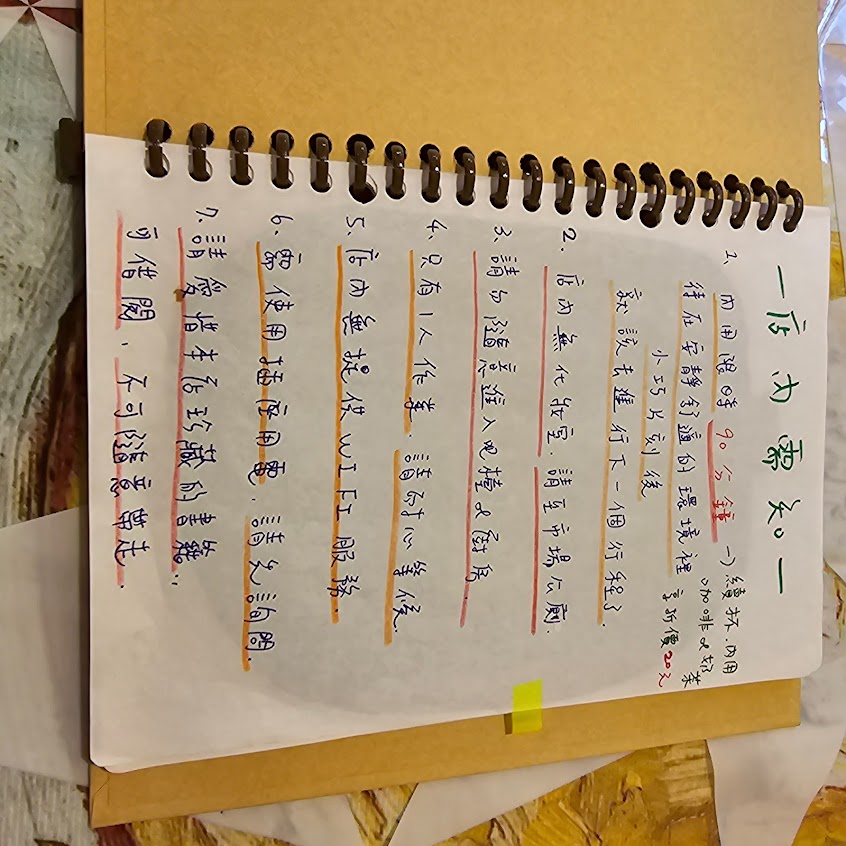 一店內需知一
1. 內用限時 90分鐘 →續杯.內用
咖啡&奶茶
享折價20元
待在安靜舒適的環境裡
小巧片刻後
就該去進行下一個行程了.
2. 店內無化妝室. 請至市場公廁.
3. 請勿隨意進入吧檯&廚房.
4. 只有1人作業. 請耐心等候.
5. 店內無提供WIFI服務.
6. 需使用插座用電. 請先詢問.
7. 請愛惜本店珍藏的書籍..
可借閱, 不可隨意帶走.